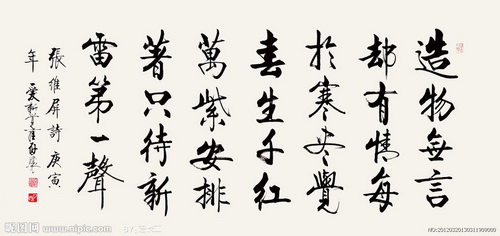 造物無言
却有情每
於寒尽覺
春生千紅
萬紫安排
著只待新
雷第一聲
張維屏詩 庚寅
年 愛新
昵图网 www.nipic.com
NO:20120320130311909000